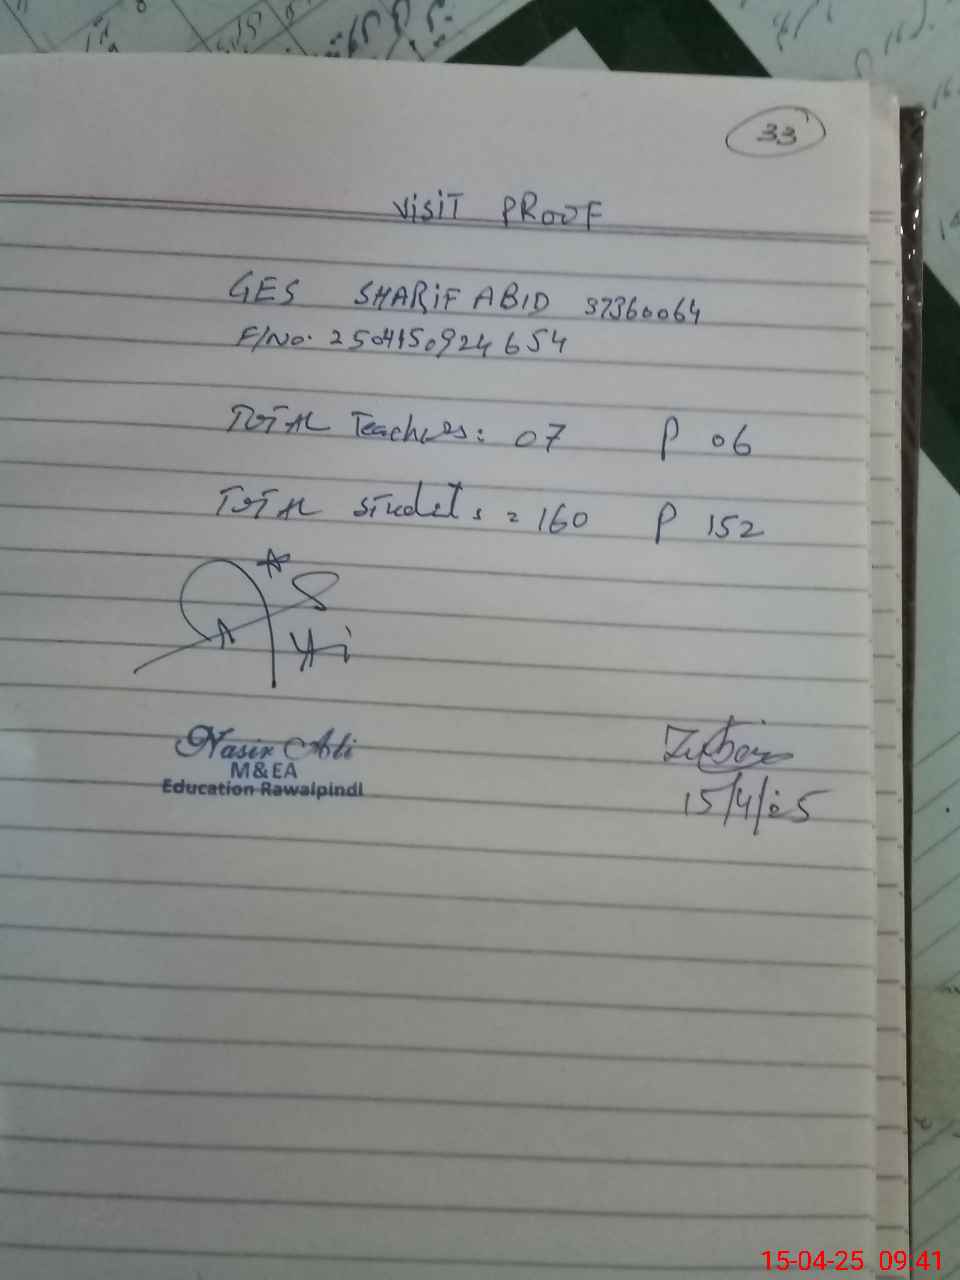 33
VISIT PROOF
GES SHARIF ABID 37360064
F/No. 2504150924654
TOTAL Teachers: 07 P 06
TOTAL Students = 160 P 152
Nasir Ali
M&EA
Education Rawalpindi
15/4/25
15-04-25 09:41